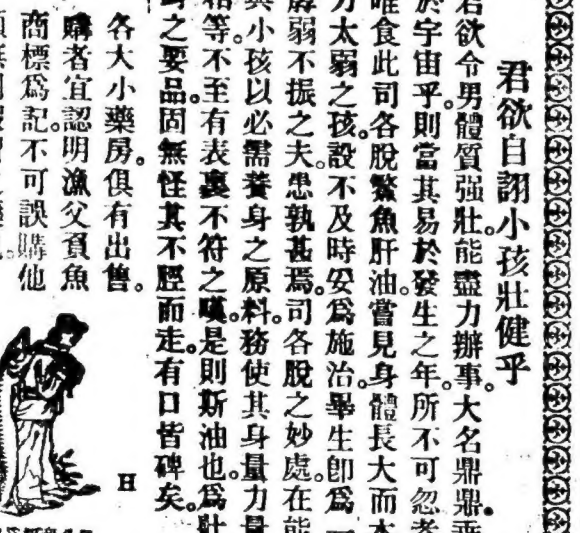 君欲自詡小孩壯健乎
君欲令男體質强壯。能盡力辦事。大名鼎鼎。垂
於宇宙乎。則當其易於發生之年。所不可忽者
唯食此司各脫鰵魚肝油。嘗見身體長大而本
力太弱之孩。設不及時妥爲施治。畢生卽爲一
弱不振之夫。患孰甚焉。司各脫之妙處。在能
與小孩以必需養身之原料。務使其身量力量
相等。不至有表裏不符之嘆。是則斯油也。爲壯
身之要品。固無怪其不脛而走。有口皆碑矣。
H
各大小藥房。俱有出售。
購者宜認明漁父負魚
商標爲記。不可誤購他